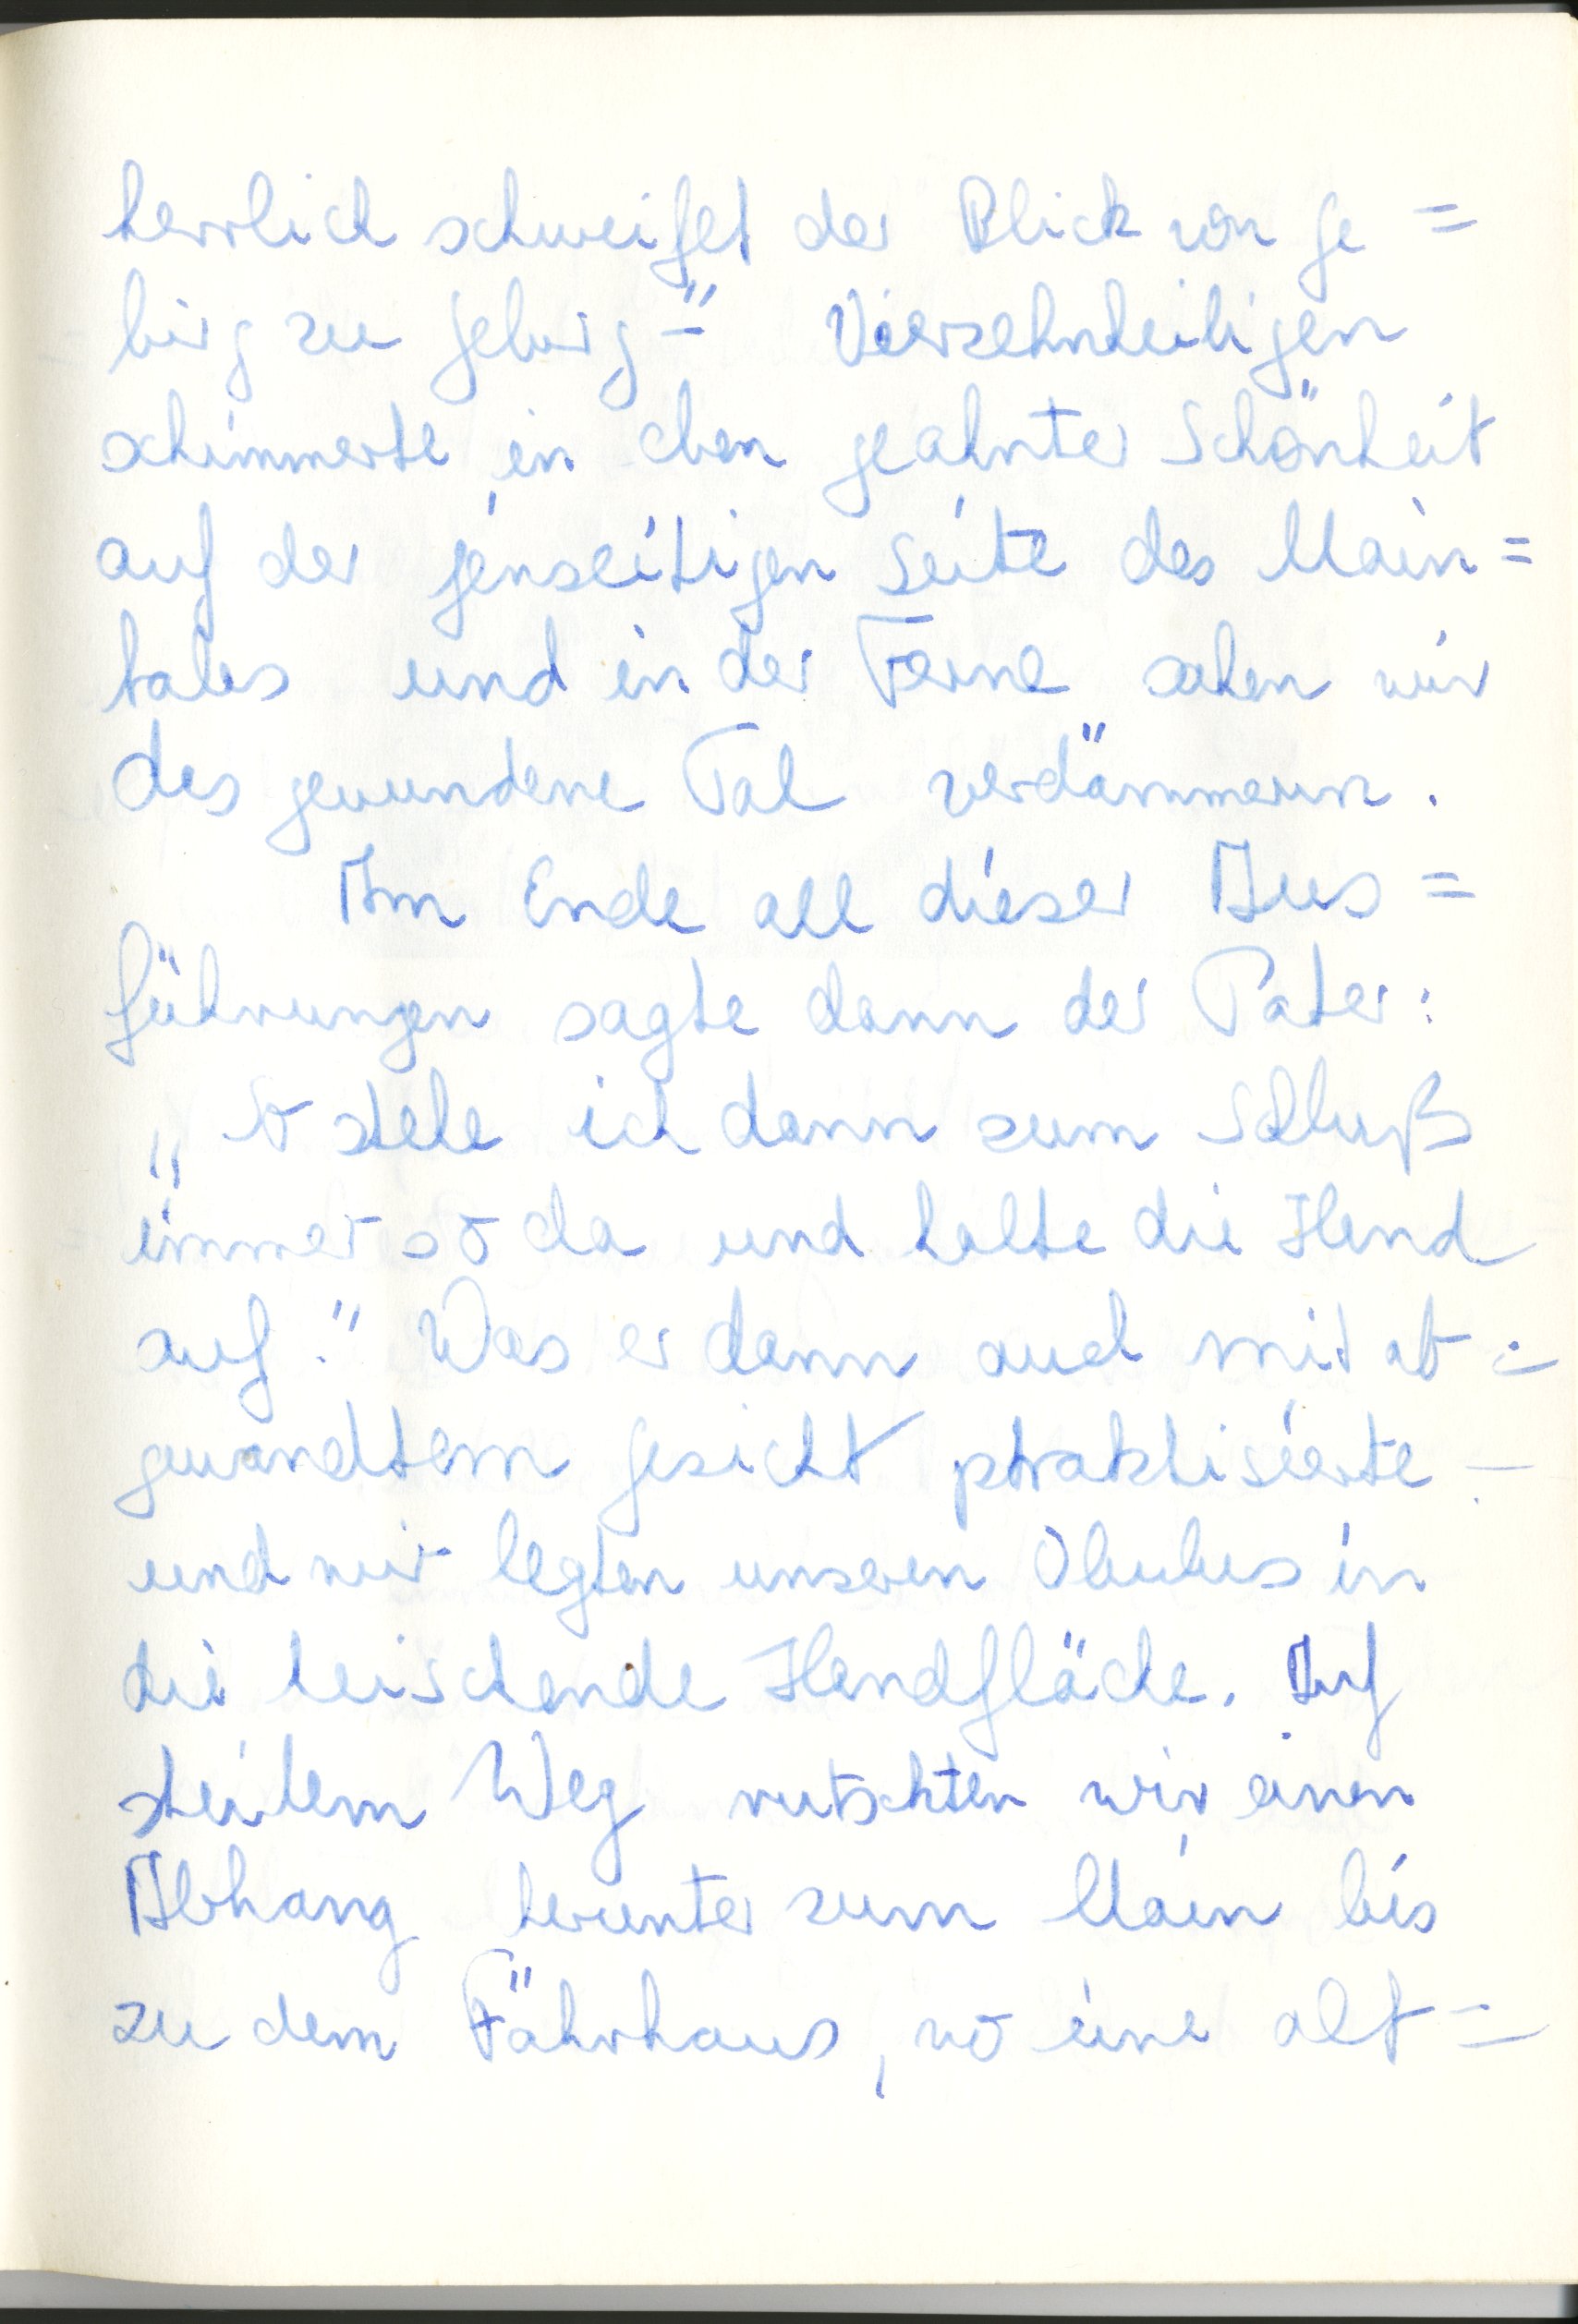 herrlich schweifet der Blick von Ge=
birg zu Gebirg –" Vierzehnheiligen
schimmerte in eben geahnter Schönheit
auf der jenseitigen Seite des Main=
tales und in der Ferne sahen wir
das gewundene Tal verdämmern.
Am Ende all dieser Aus=
führungen sagte dann der Pater:
„So stehe ich dann zum Schluß
immer so da und halte die Hand
auf." Was er dann auch mit ab=
gewandtem Gesicht praktizierte –
und wir legten unseren Obulus in
die heischende Handfläche. Auf
steilem Weg rutschten wir einen
Abhang herunter zum Main bis
zu dem Fährhaus, wo eine alt=